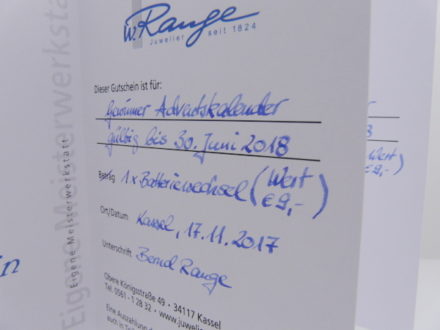 W. Range
Juwelier seit 1824
Dieser Gutschein ist für:
Gewinner Adventskalender
gültig bis 30. Juni 2018
Betrag 1x Batteriewechsel (Wert € 9,-)
Ort/Datum Kassel, 17.11.2017
Unterschrift Bernd Range
Obere Königsstraße 49 · 34117 Kassel
Tel. 0561-1 28 32 · www.juwelie
Eine Auszahlung d
auch in T
Eigene Meisterwerkstatt
Eigene Meisterwerkstatt
in
Wert)
€9,-